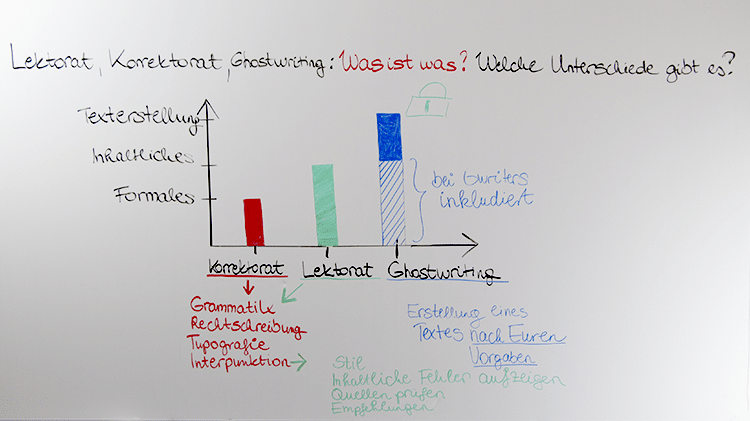 Lektorat, Korrektorat, Ghostwriting: Was ist was? Welche Unterschiede gibt es?
Texterstellung
Inhaltliches
Formales
bei Gwriters
inkludiert
Korrektorat
Lektorat
Ghostwriting
Grammatik
Rechtschreibung
Typografie
Interpunktion
Stil
Inhaltliche Fehler aufzeigen
Quellen prüfen
Empfehlungen
Erstellung eines
Textes nach Euren
Vorgaben